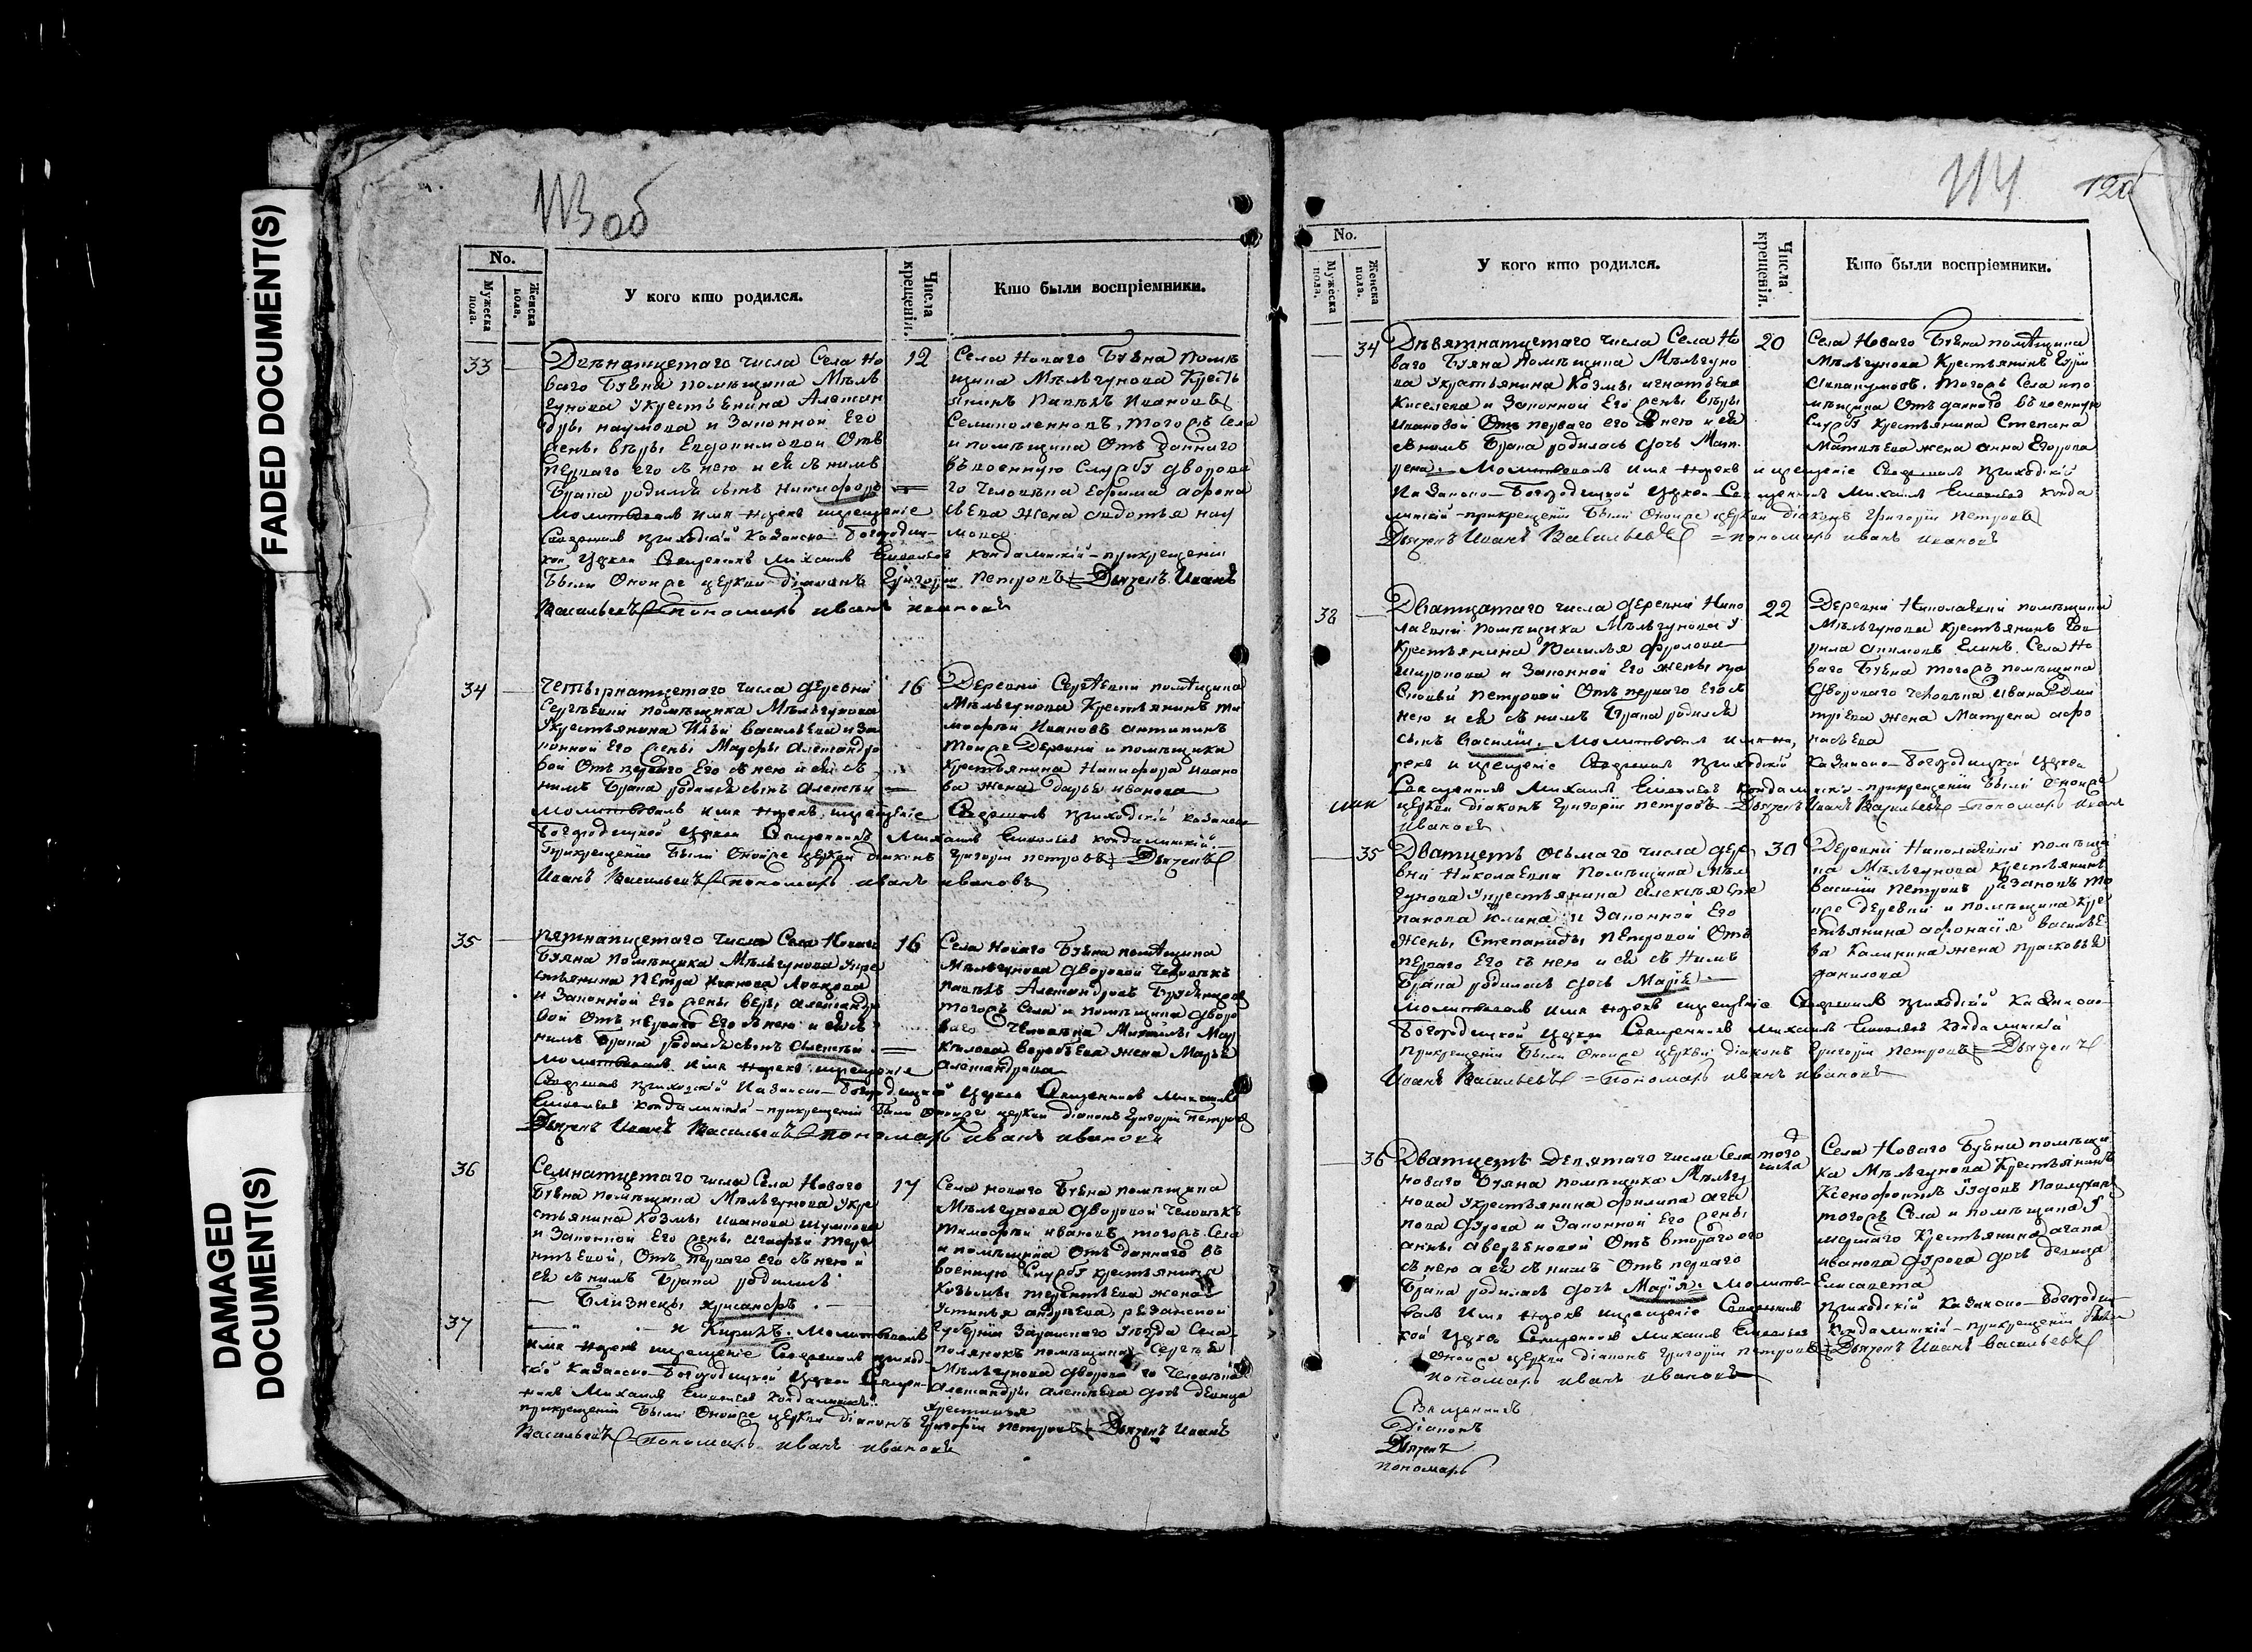 FADED DOCUMENT(S)
DAMAGED
DOCUMENT(S)
113 об
No.
Мужеска пола.
Женска пола.
У кого кто родился.
Числа крещенія.
Кто были воспріемники.
33
Двѣнатцетаго числа Села Но
ваго Буяна помѣщика Мѣль
гунова укрестьенина Алексан
дры наумова и Законной Его
жены вѣры Евдокимовой Отъ
перваго его съ нею и ей съ нимъ
брака родился сынъ Никифоръ
молитвовалъ имя нарекъ икрещеніе
Совершалъ приходскій Казанско-Богородиц-
кой церкви Священникъ Михаилъ кондалинскій-прикрещеніи
были Оноиже церкви діаконъ Григорій Петровъ = Дьячекъ Иванъ
Васильевъ = пономарь иванъ ивановъ
12
Села Новаго Буяна помѣ
щика Мѣльгунова Кресть
янинъ Павелъ Ивановъ
тогожъ села
и помѣщика Отъ даннаго
въ военную Службу дворова
го Человѣка Ефима афона
сьева жена авдотья нау
мова
34
Четырнатцетаго числа деревни
Сергѣевки помѣщика Мѣльгунова
Укрестьянина Ильи васильева и За
конной Его жены Марфы Александро
вой Отъ перваго Его съ нею и ей съ
нимъ брака родился сынъ Алексѣй
молитвовалъ имя нарекъ икрещеніе Совершалъ приходскій казанско
Богородицкой церкви Священникъ Михаилъ кондалинскій.-
Прикрещеніи были Оноиже церкви діаконъ Григорій петровъ = Дьячекъ
Иванъ Васильевъ = пономарь иванъ ивановъ
16
Деревни Сергѣевки помѣщика
Мѣльгунова Крестьянинъ ти
мофѣй Ивановъ антипинъ
Тоиже Деревни и помѣщика
Крестьянина Никифора Ивано
ва жена дарья иванова
35
Пятнатцетаго числа Села Новаго
Буяна помѣщика Мѣльгунова Укре
стьянина Петра Иванова
и Законной Его жены веры александро
вой Отъ перваго Его съ нею и ей съ
нимъ брака родился сынъ Алексѣй
молитвовалъ имя нарекъ икрещеніе
Совершалъ приходскій Казанско-Богородицкой церкви Священникъ Михаилъ
кондалинскій-прикрещеніи были Оноиже церкви діаконъ Григорій Петровъ
Дьячекъ Иванъ Васильевъ = пономарь иванъ ивановъ
16
Села Новаго Буяна помѣщика
Мѣльгунова дворовой Человѣкъ
павелъ Александровъ
тогожъ Села и помѣщика дворо
ваго Человѣка
воробьева жена Марья
александрова
36
Семнатцетаго числа Села Новаго
Буяна помѣщика Мѣльгунова Укре
стьянина Козмы Иванова
и Законной Его жены агафьи тере
нтьевой, Отъ перваго его съ нею и
ей съ нимъ брака родились
Близнецы хрисанфъ. -
37
и Кирилъ. молитвовалъ
имя нарекъ икрещеніе Совершалъ приход-
скій Казанско-Богородицкой церкви Священ-
никъ Михаилъ кондалинскій
прикрещеніи были Оноиже церкви діаконъ Григорій петровъ = Дьячекъ Иванъ
Васильевъ = пономарь иванъ ивановъ
17
Села новаго Буяна помѣщика
Мѣльгунова дворовой Человѣкъ
Тимофѣй ивановъ тогожъ Села
и помѣщика Отъ даннаго въ
военную Службу крестьянина
Козьмы терентьева жена
Устинья андреева, резанской
Губерніи Зарайскаго уѣзда Села
полянокъ помѣщика Сергѣя
Мѣльгунова дворова го Человѣка
Александры алексѣева дочь девица
114
120
No.
Мужеска пола.
Женска пола.
У кого кто родился.
Числа крещенія.
Кто были воспріемники.
34
Дѣвятнатцетаго числа Села Но
ваго Буяна Помѣщика Мѣльгуно
ва Укрестьянина Козмы игнатьева
Киселева и Законной Его жены вѣры
ивановой Отъ перваго его съ нею и ей
съ нимъ брака родилась дочь Мат
рена. - Молитвовалъ имя нарекъ и крещеніе Совершалъ приходскій
Казанско-Богородицкой церкви Священникъ Михаилъ конда
линскій-прикрещеніи были Оноиже церкви діаконъ Григорій петровъ
Дьячекъ Иванъ Васильевъ = пономарь иванъ ивановъ
20
Села Новаго Буяна помѣщика
Мѣльгунова Крестьянинъ
тогожъ Села ипо
мѣщика Отъ даннаго въ военную
Службу крестьянина Степана
Матвѣева жена анна Егорова
38
Дватцатаго числа деревни Нико
лаевки помѣщика Мѣльгунова У
Крестьянина Василья фролова
и Законной Его жены пра
сковьи петровой Отъ перваго Его съ
нею и ей съ нимъ брака родился
сынъ Василій. Молитвовалъ имя на
рекъ и крещеніе Совершалъ приходскій Казанско-Богородицкой церкви
Священникъ Михаилъ кондалинскій-прикрещеніи были Оноиже
церкви діаконъ Григорій петровъ = Дьячекъ Иванъ Васильевъ = пономарь иванъ
ивановъ
22
Деревни Николаевки помѣщика
Мѣльгунова крестьянинъ Гав
рила акимовъ Елинъ. Села Но
ваго Буяна тогожъ помѣщика
дворовaго человѣка Ивана Дми
тріева жена Матрена афо
насьева
35
Дватцеть осьмаго числа дере
вни Николаевки Помѣщика Мѣль
гунова Укрестьянина алексѣя сте
панова Клина и Законной Его
жены Степаниды петровой Отъ
перваго Его съ нею и ей съ нимъ
брака родилась дочь Марія. -
молитвовалъ имя нарекъ икрещеніе Совершалъ приходскій Казанско-
Богородицкой церкви Священникъ Михаилъ кондалинскій
прикрещеніи были Оноиже церкви діаконъ Григорій петровъ = Дьячекъ
Иванъ Васильевъ = пономарь иванъ ивановъ
30
Деревни Николаевки помѣщи
ка Мѣльгунова крестьянинъ
василій петровъ рязановъ то
иже деревни и помѣщика кре
стьянина афонасія василье
ва Калинина жена прасковья
данилова
36
Дватцеть девятаго числа Села
новаго Буяна помѣщика Мѣльгу
нова Укрестьянина филипа ага
пова дурова и Законной Его жены
анны аверьяновой Отъ втораго его
съ нею а ей съ нимъ Отъ перваго
брака родилась дочь Марія. молитво
валъ имя нарекъ икрещеніе Совершалъ приходскій Казанско-Богородиц-
кой церкви Священникъ Михаилъ кондалинскій-прикрещеніи были
Оноиже церкви діаконъ Григорій петровъ = Дьячекъ Иванъ васильевъ
пономарь иванъ ивановъ
того
числа
Села Новаго Буяна помѣщи
ка Мѣльгунова Крестьянинъ
Ксенофонтъ
тогожъ Села и помѣщика У
мершаго Крестьянина агапа
иванова дурова дочь девица
Елисавета
Священникъ
Діаконъ
Дьячекъ
пономарь